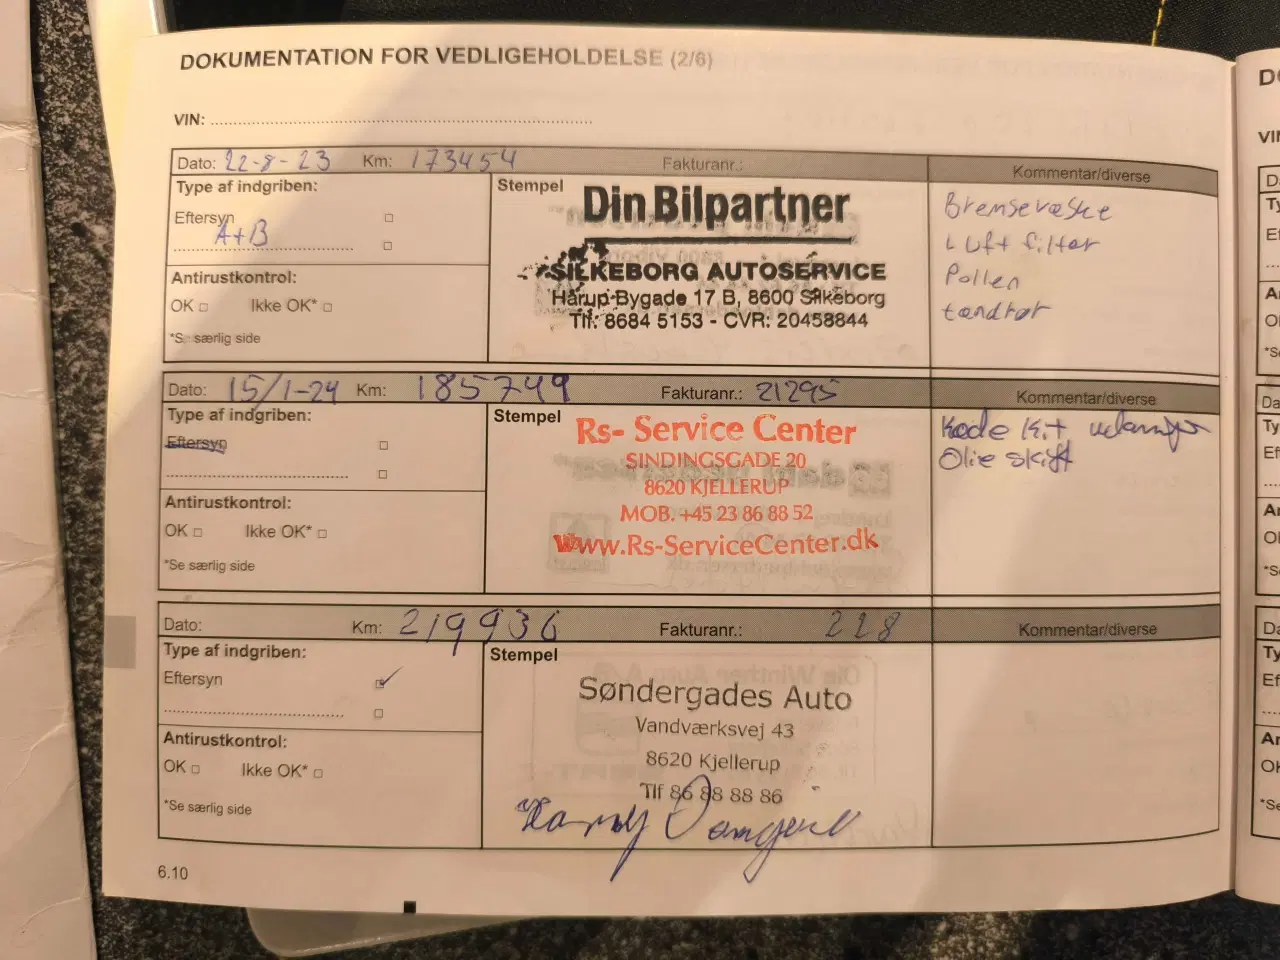 DOKUMENTATION FOR VEDLIGEHOLDELSE (2/6)
VIN:
Dato: 22-8-23 Km: 173454 Fakturanr.: Kommentar/diverse
Type af indgriben:
Eftersyn
A+B
Antirustkontrol:
OK Ikke OK*
*S særlig side
Stempel
Din Bilpartner
SILKEBORG AUTOSERVICE
Hårup Bygade 17 B, 8600 Silkeborg
Tlf. 8684 5153 - CVR: 20458844
Bremsevæske
Luft filter
Pollen
tændrør
Dato: 15/1-24 Km: 185749 Fakturanr.: 21295 Kommentar/diverse
Type af indgriben:
Eftersyn
Antirustkontrol:
OK Ikke OK*
*Se særlig side
Stempel
Rs- Service Center
SINDINGSGADE 20
8620 KJELLERUP
MOB. +45 23 86 88 52
Www.Rs-ServiceCenter.dk
Kæde Kit
Olie skift
Dato: Km: 219936 Fakturanr.: 228 Kommentar/diverse
Type af indgriben:
Eftersyn
Antirustkontrol:
OK Ikke OK*
*Se særlig side
Stempel
Søndergades Auto
Vandværksvej 43
8620 Kjellerup
Tlf 86 88 88 86
6.10
VI